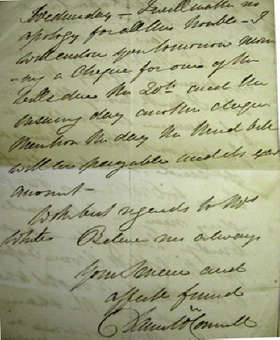 Wednesday – I will make no
apology for all this trouble – I
will enclose you tomorrow morn
-ing a cheque for one of the
bills due the 20th and the
ensuing day another cheque
Mention the day the third bill
will be payable and its exact
amount –
With best regards to Mrs
White Believe me always
Your sincere and
affecte friend
Daniel O'Connell